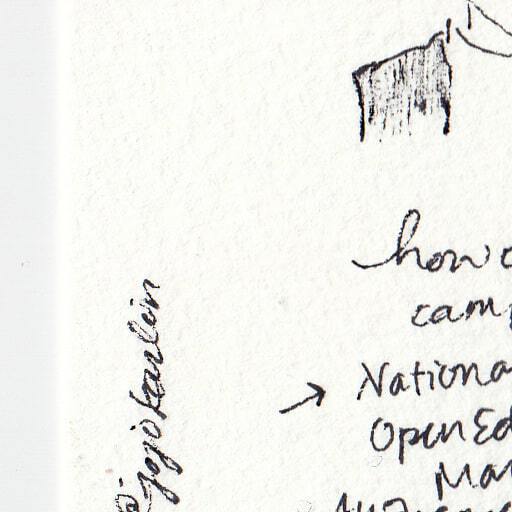 how
cam
→ Nationa
OpenEd
Mar
@jojokarlin